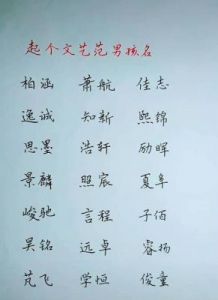 起个文艺范男孩名
柏涵 萧航 佳志
逸诚 知新 熙锦
思墨 浩轩 励晖
景麟 照宸 夏阜
峻驰 言程 子佰
昊铭 远卓 睿扬
芃飞 学恒 俊童